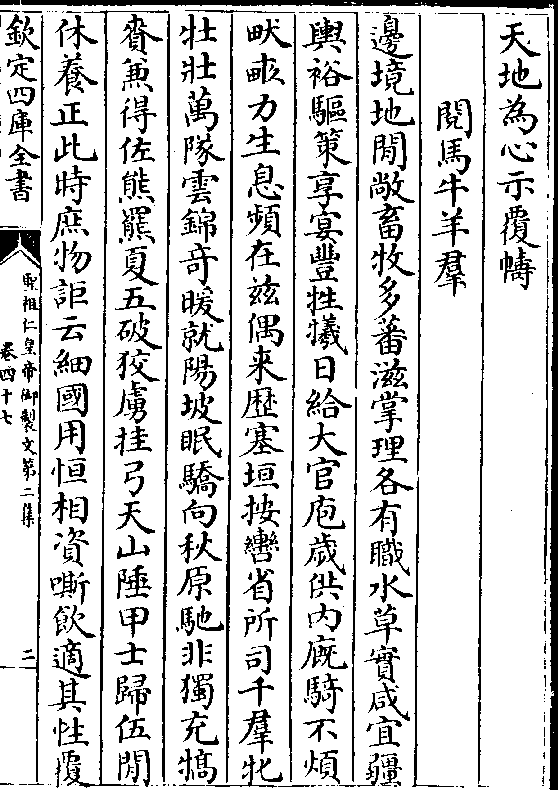 天地為心示覆幬
閱馬牛羊羣
邊境地閒敞畜牧多蕃滋掌理各有職水草實咸宜疆
輿裕驅策享宴豐牲犧日給大官庖歳供内廐騎不煩
畎畝力生息頻在兹偶来歴塞垣按轡省所司千羣牝
牡壯萬隊雲錦竒暖就陽坡眠驕向秋原馳非獨充犒
賚兼得佐熊羆夏五破狡虜挂弓天山陲甲士歸伍閒
休養正此時庶物詎云細國用恒相資嘶飲適其性覆
欽定四庫全書
聖祖仁皇帝御製文第二集
卷四十七
二